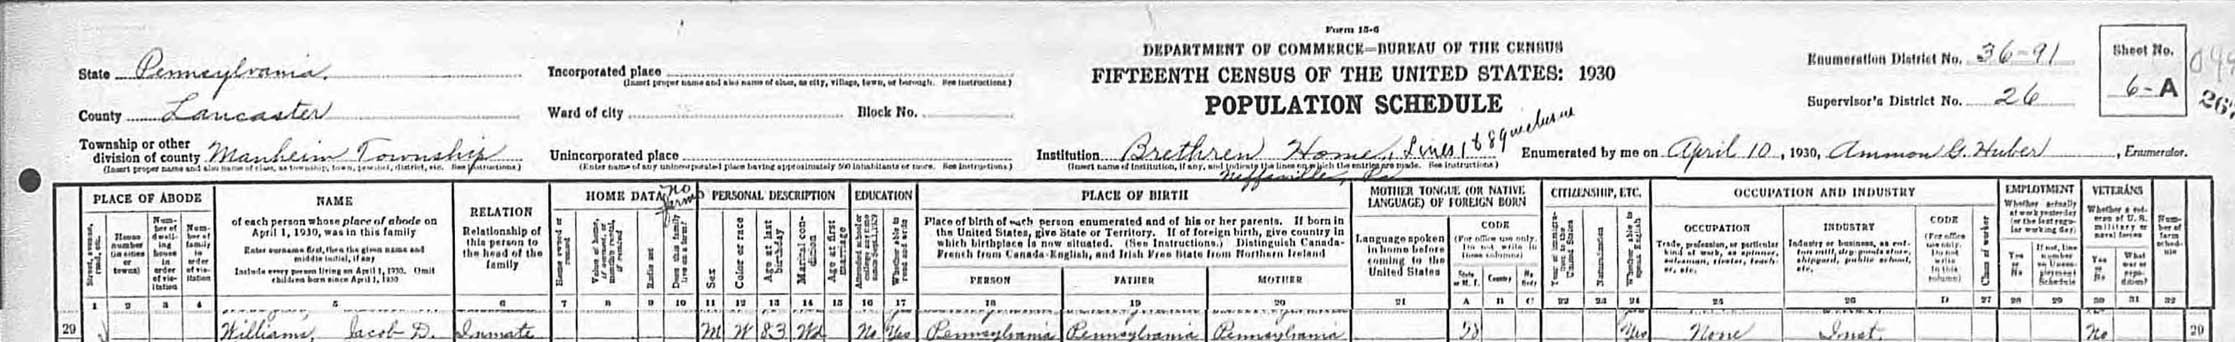 Form 15-6
DEPARTMENT OF COMMERCE—BUREAU OF THE CENSUS
FIFTEENTH CENSUS OF THE UNITED STATES: 1930
POPULATION SCHEDULE
State Pennsylvania
County Lancaster
Township or other
division of county Manheim Township
Incorporated place
(Insert proper name and also name of class, as city, village, town, or borough. See instructions)
Ward of city
Block No.
Unincorporated place
(Enter name of any unincorporated place having approximately 500 inhabitants or more. See instructions)
Institution Brethren Home, Lines 1 to 89 inclusive
(Insert name of institution, if any, and indicate the lines on which the entries are made. See instructions)
Neffsville, Pa
Enumeration District No. 36-91
Supervisor's District No. 26
Sheet No.
6-A
Enumerated by me on April 10, 1930, Ammon G. Huber, Enumerator.
PLACE OF ABODE
House number (in cities or towns)
Number of dwelling house in order of visitation
Number of family in order of visitation
NAME
of each person whose place of abode on
April 1, 1930, was in this family
Enter surname first, then the given name and
middle initial, if any
Include every person living on April 1, 1930. Omit
children born since April 1, 1930
RELATION
Relationship of
this person to
the head of the
family
HOME DATA
no farms
Home owned or rented
Value of home, if owned, or monthly rental, if rented
Radio set
Does this family live on a farm?
PERSONAL DESCRIPTION
Sex
Color or race
Age at last birthday
Marital condition
Age at first marriage
EDUCATION
Whether able to read and write
PLACE OF BIRTH
Place of birth of each person enumerated and of his or her parents. If born in
the United States, give State or Territory. If of foreign birth, give country in
which birthplace is now situated. (See Instructions.) Distinguish Canada-
French from Canada-English, and Irish Free State from Northern Ireland
PERSON
FATHER
MOTHER
MOTHER TONGUE (OR NATIVE
LANGUAGE) OF FOREIGN BORN
Language spoken
in home before
coming to the
United States
CODE
(For office use only.
Do not write
in these columns)
State or M. T.
Country
CITIZENSHIP, ETC.
Year of immigration to the United States
Naturalization
Whether able to speak English
OCCUPATION AND INDUSTRY
OCCUPATION
Trade, profession, or particular
kind of work, as spinner,
salesman, riveter, teacher, etc.
INDUSTRY
Industry or business, as cotton mill, dry-goods store,
shipyard, public school,
etc.
CODE
(For office
use only.
Do not
write
in this
column)
Class of worker
EMPLOYMENT
Whether actually
at work yesterday
(or the last regular working day)
Yes or No
If not, line number on Unemployment Schedule
VETERANS
Whether a veteran of U. S.
military or
naval forces
Yes or No
What war or expedition?
Number of farm schedule
1 2 3 4 5 6 7 8 9 10 11 12 13 14 15 16 17 18 19 20 21 A B C 22 23 24 25 26 D 27 28 29 30 31 32
29 Williams, Jacob D. Inmate M W 83 Wd No Yes Pennsylvania Pennsylvania Pennsylvania Yes None Inst. No 29